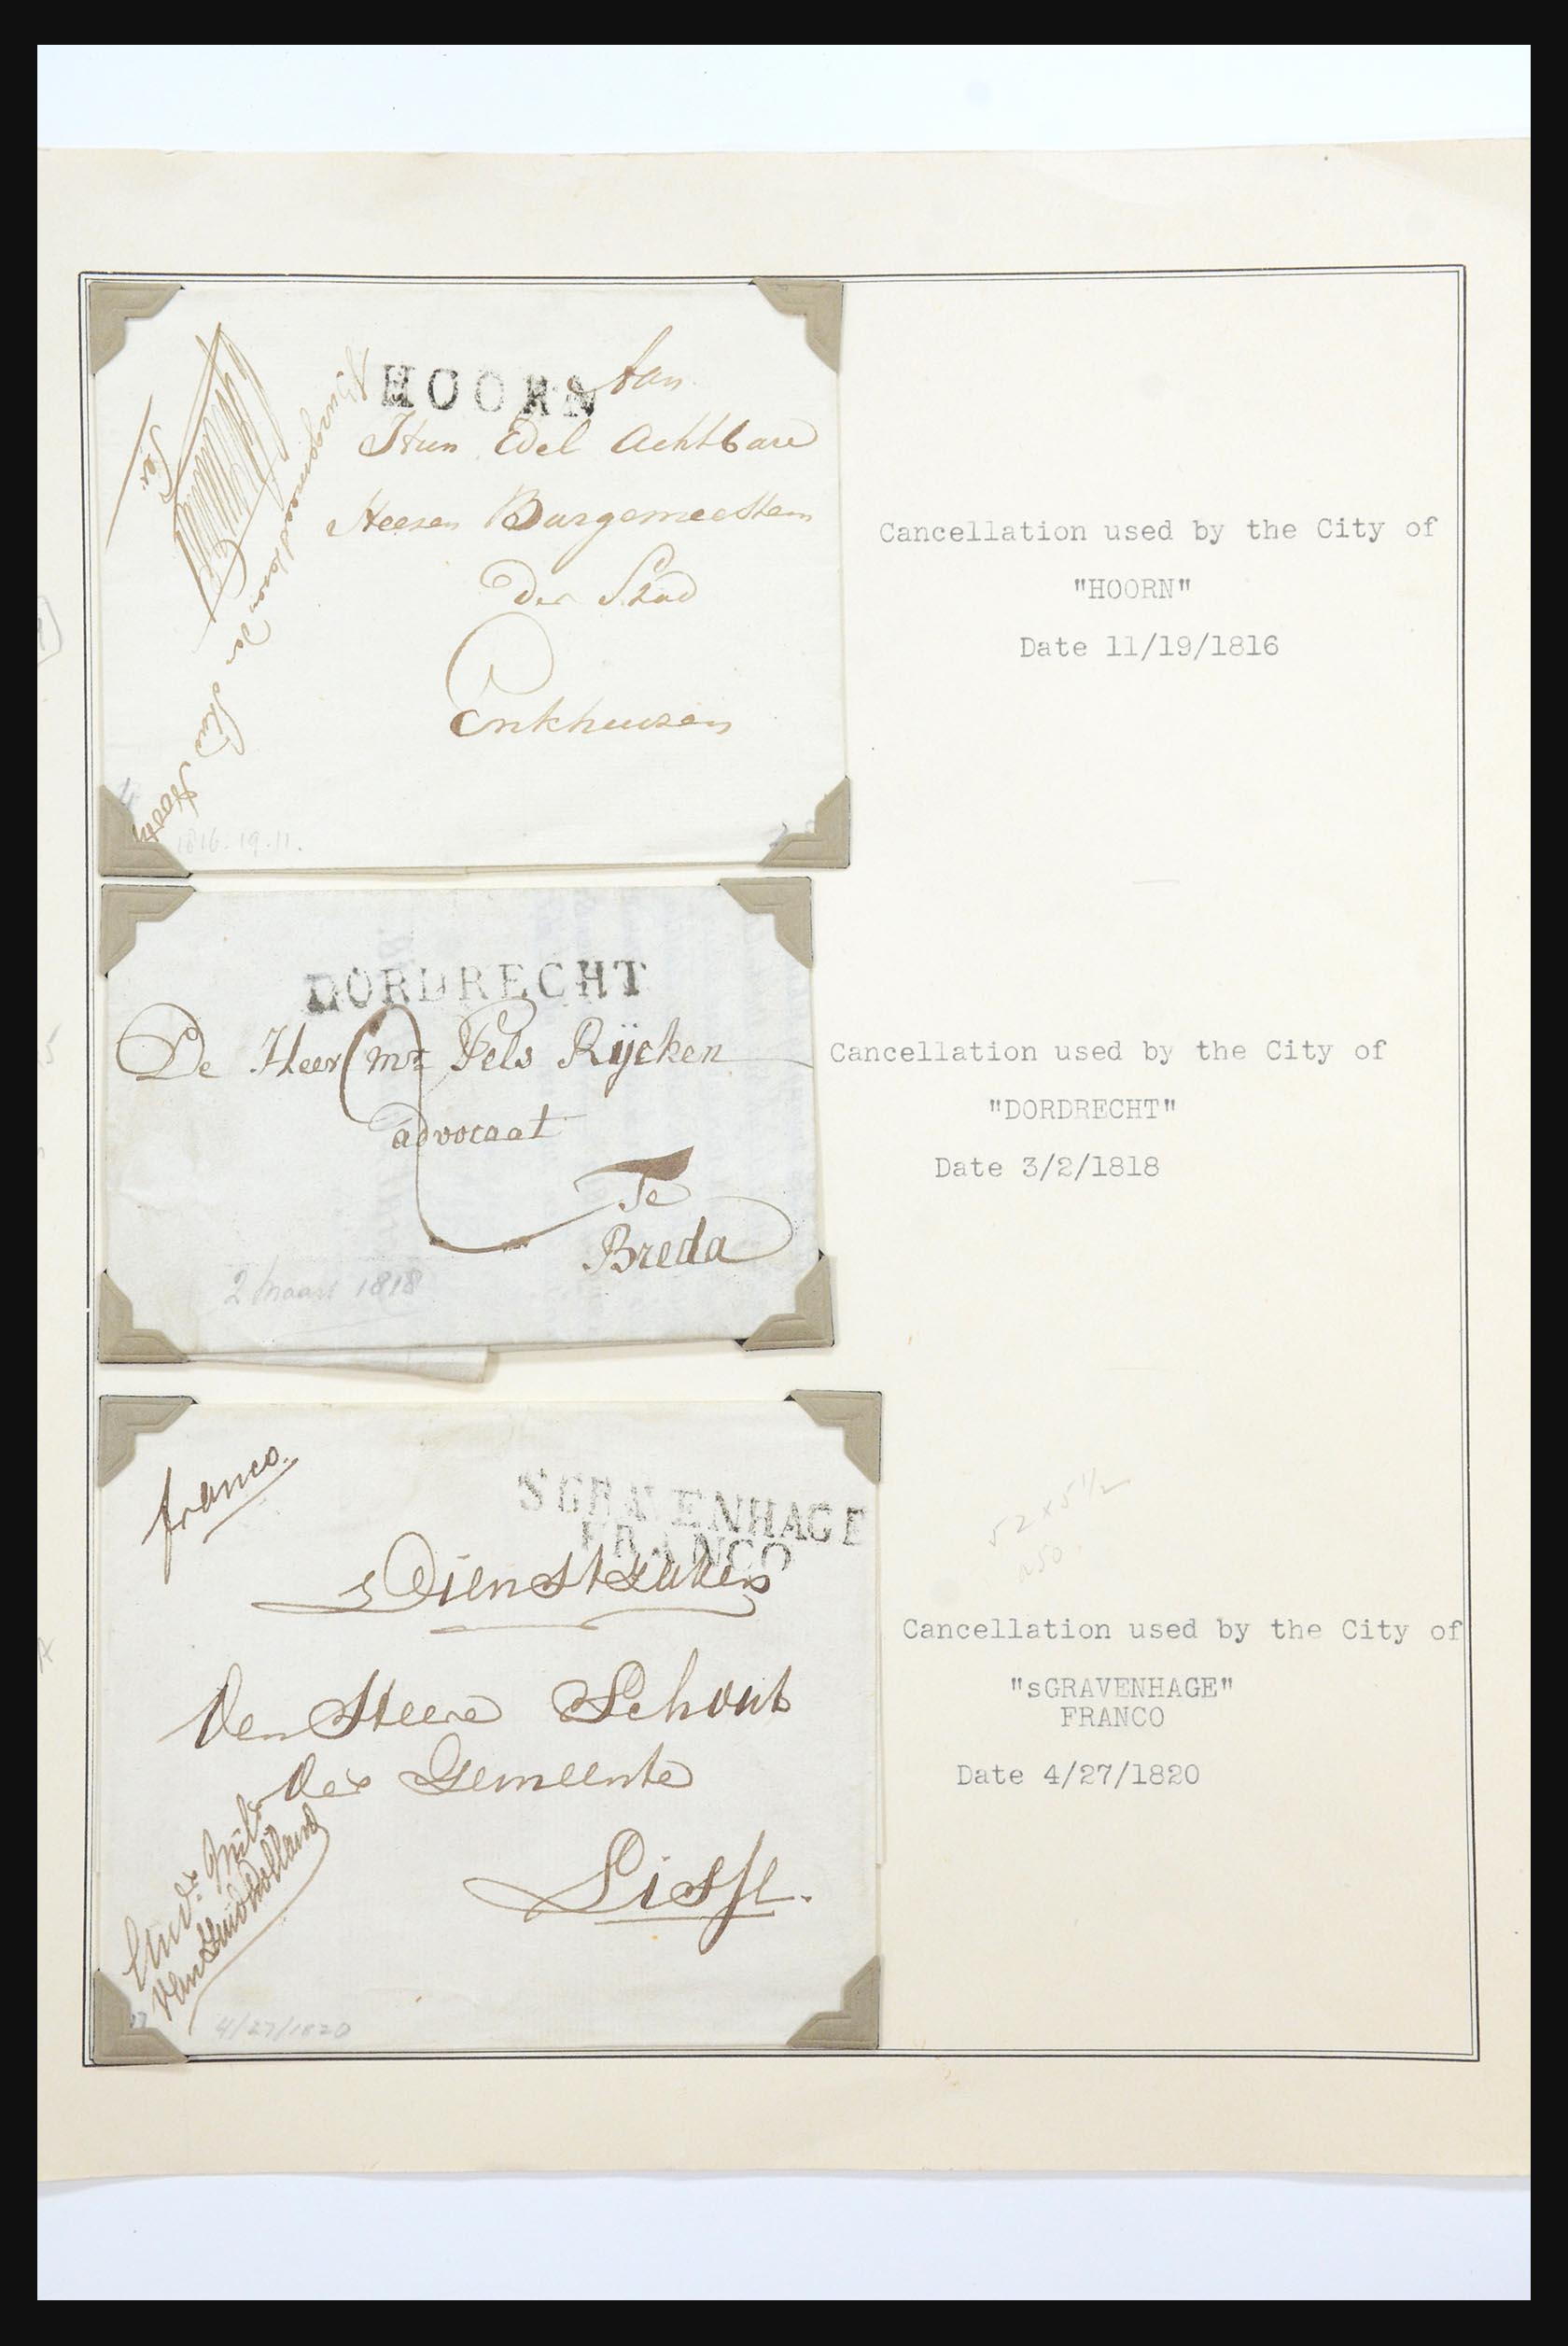 HOORN
Aan
Hun Edel Achtbare
Heeren Burgemeesteren
der Stad
Enkhuizen
Burgemeesteren der Stad Hoorn
1816.19.11.
Cancellation used by the City of
"HOORN"
Date 11/19/1816
DORDRECHT
De Heer Mr. Fels Rijcken
advocaat
Te
Breda
2 Maart 1818
Cancellation used by the City of
"DORDRECHT"
Date 3/2/1818
franco.
SGRAVENHAGE
FRANCO
sDienstzaken
Den Heere Schout
der Gemeente
Lisse.
van Zuid Holland
4/27/1820
52 x 5 1/2
Cancellation used by the City of
"sGRAVENHAGE"
FRANCO
Date 4/27/1820